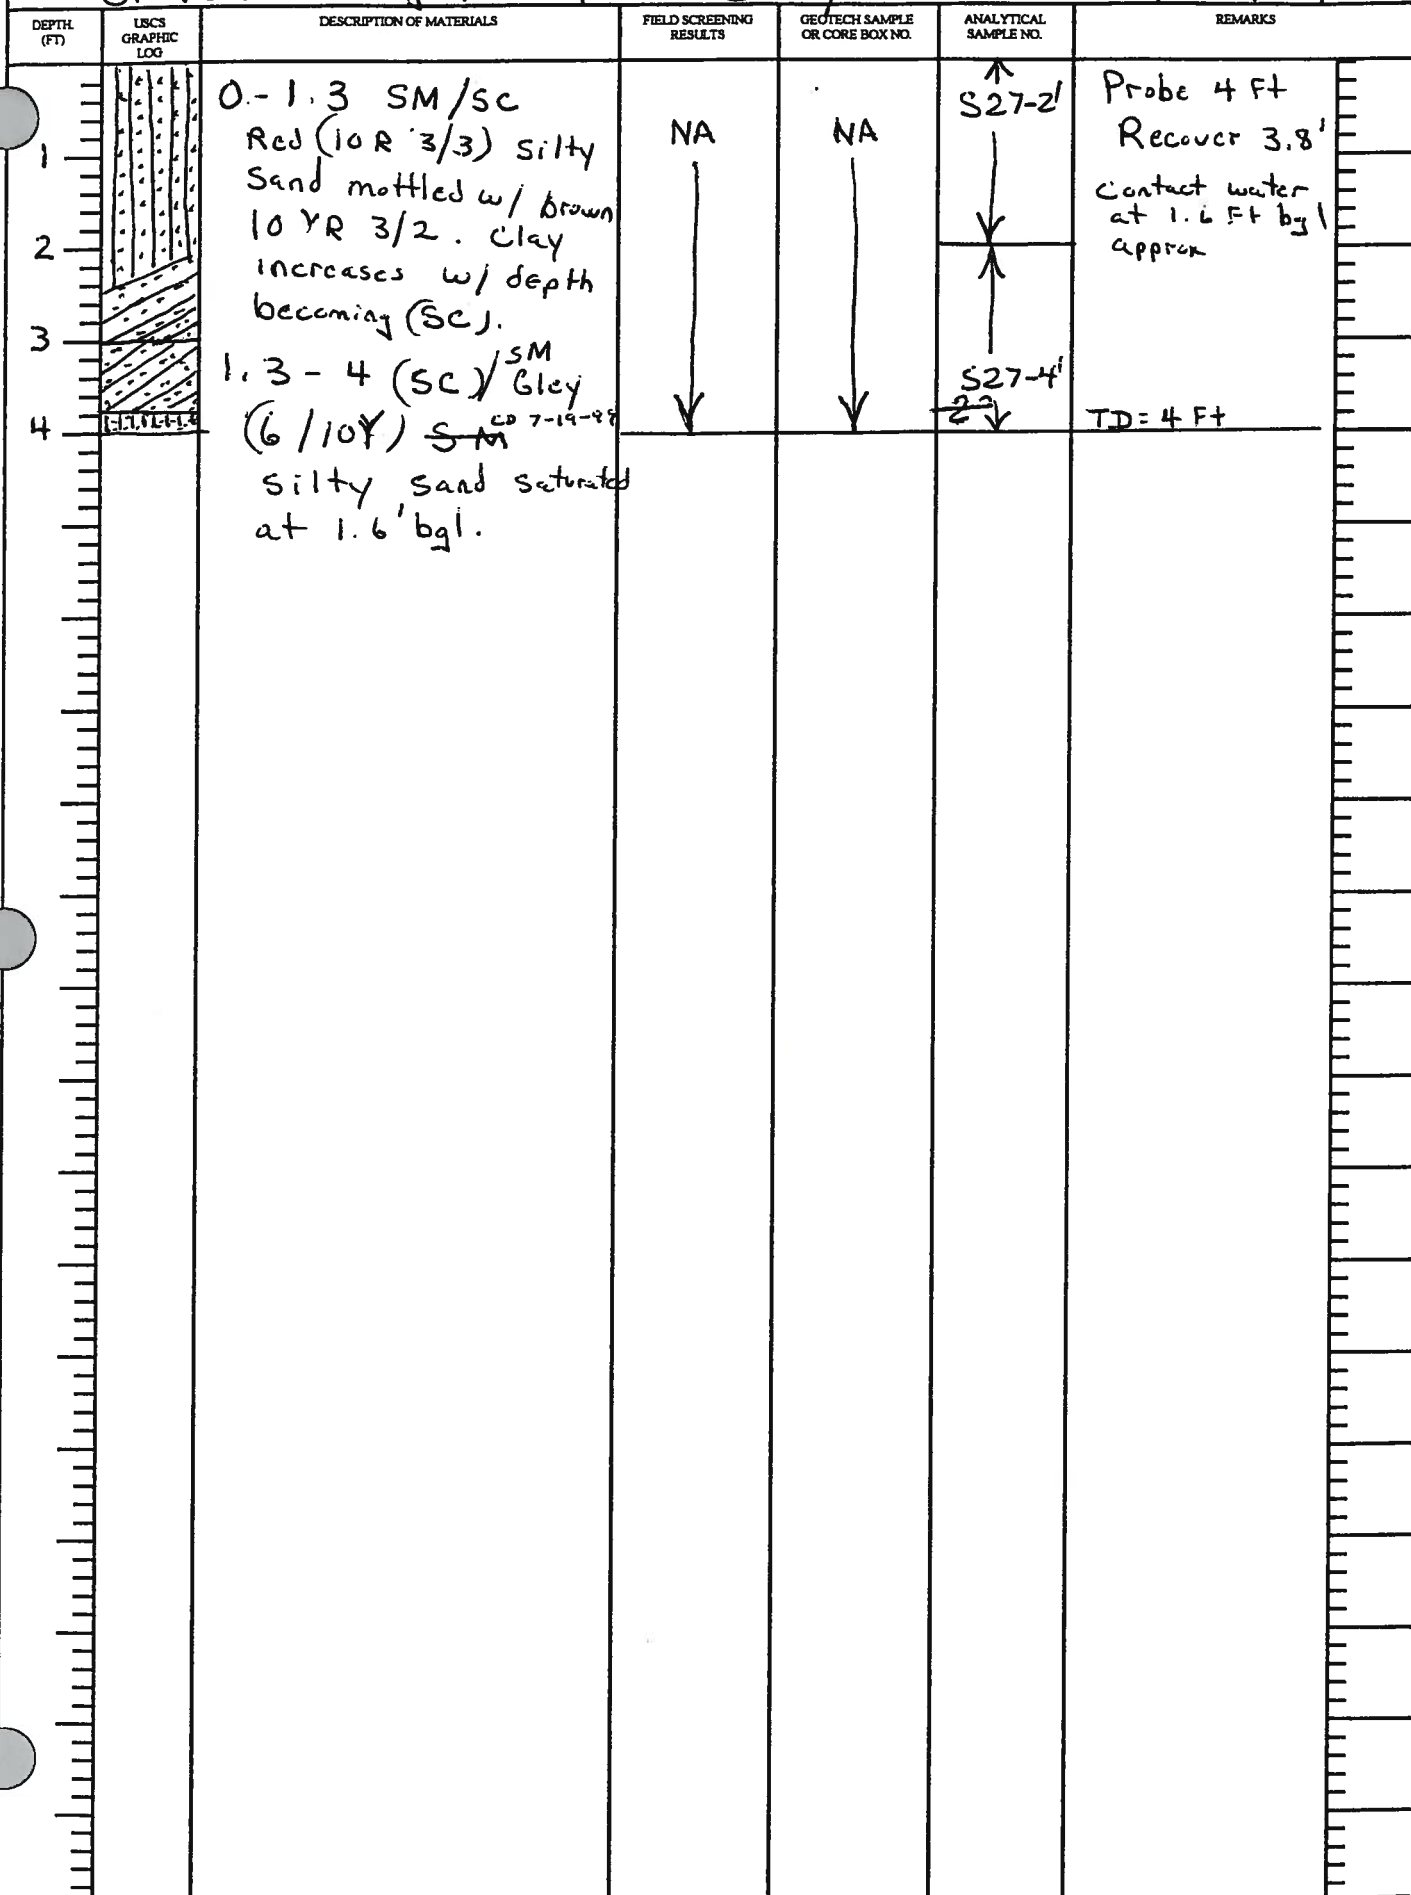 DEPTH (FT)
USCS GRAPHIC LOG
DESCRIPTION OF MATERIALS
FIELD SCREENING RESULTS
GEOTECH SAMPLE OR CORE BOX NO.
ANALYTICAL SAMPLE NO.
REMARKS
1
2
3
4
0.-1.3 SM/SC
Red (10 R 3/3) Silty
Sand mottled w/ brown
10 YR 3/2. Clay
increases w/ depth
becoming (SC).
1.3-4 (SC)/SM
Gley
(6/10Y) SM CD 7-19-99
Silty Sand saturated
at 1.6' bgl.
NA
NA
S27-2'
S27-4'
Probe 4 Ft
Recover 3.8'
Contact water
at 1.6 Ft bgl
approx
TD = 4 Ft